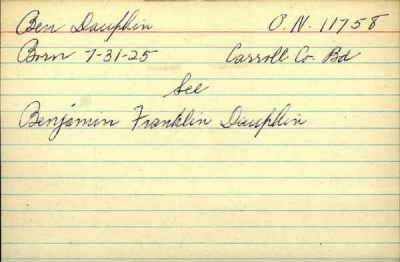 Ben Dauphin O.N. 11758
Born 7-31-25 Carroll Co. Bd
See
Benjamin Franklin Dauphin